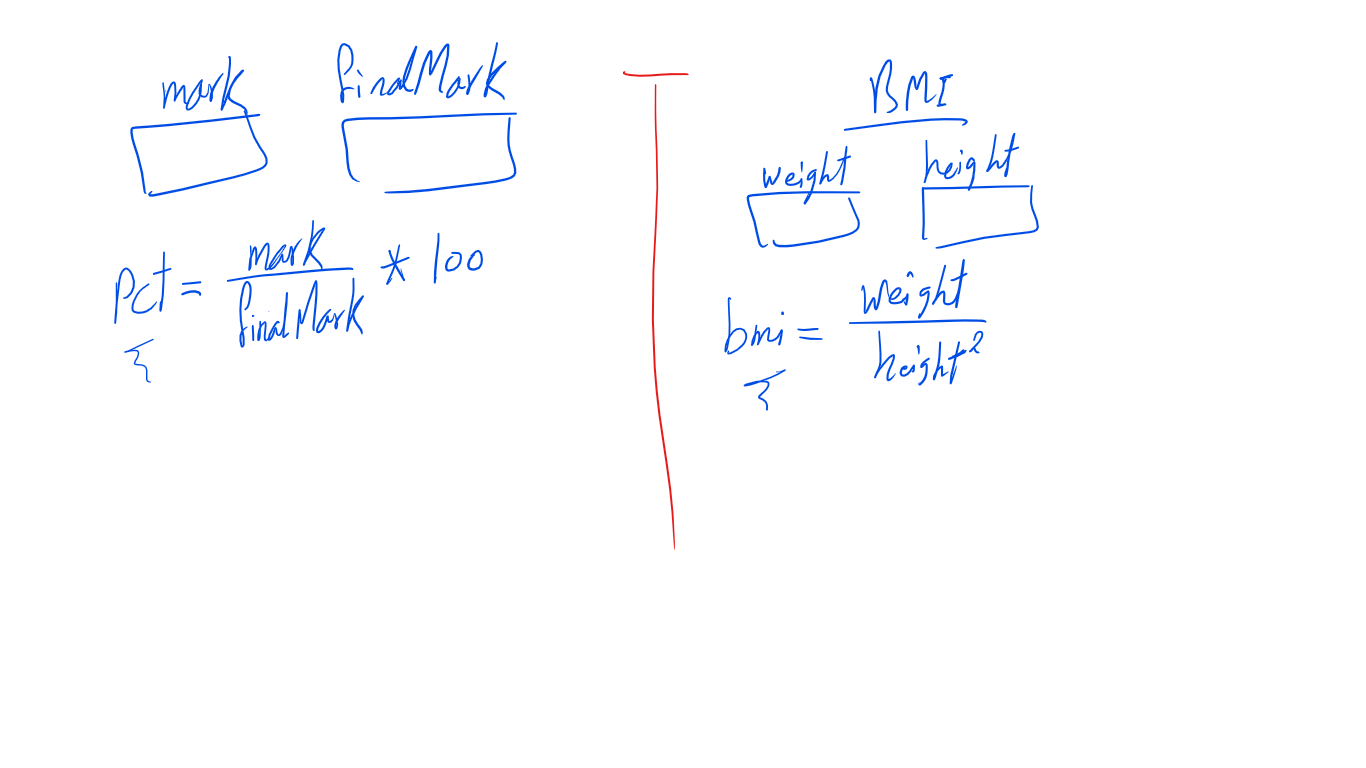 mark finalMark
pct = mark / finalMark * 100
BMI
weight height
bmi = weight / height²